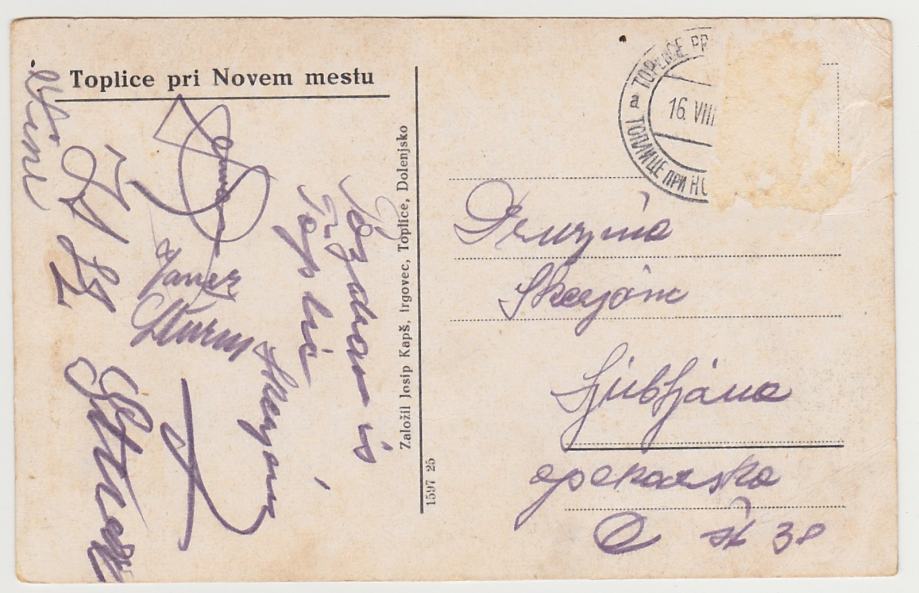 Toplice pri Novem mestu
Pozdrav is
Toplic
Janez
Sturm
Založil Josip Kapš, trgovec, Toplice, Dolenjsko
1597 25
TOPLICE PR
16. VIII
a ТОПЛИЦЕ ПРИ НО
Družina
Skerjanc
Ljubljana
opekarska
C št 38